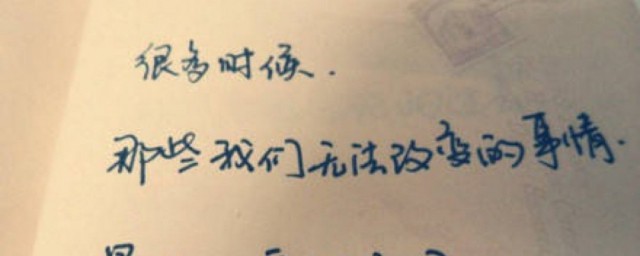 很多时候.
那些我们无法改变的事情.